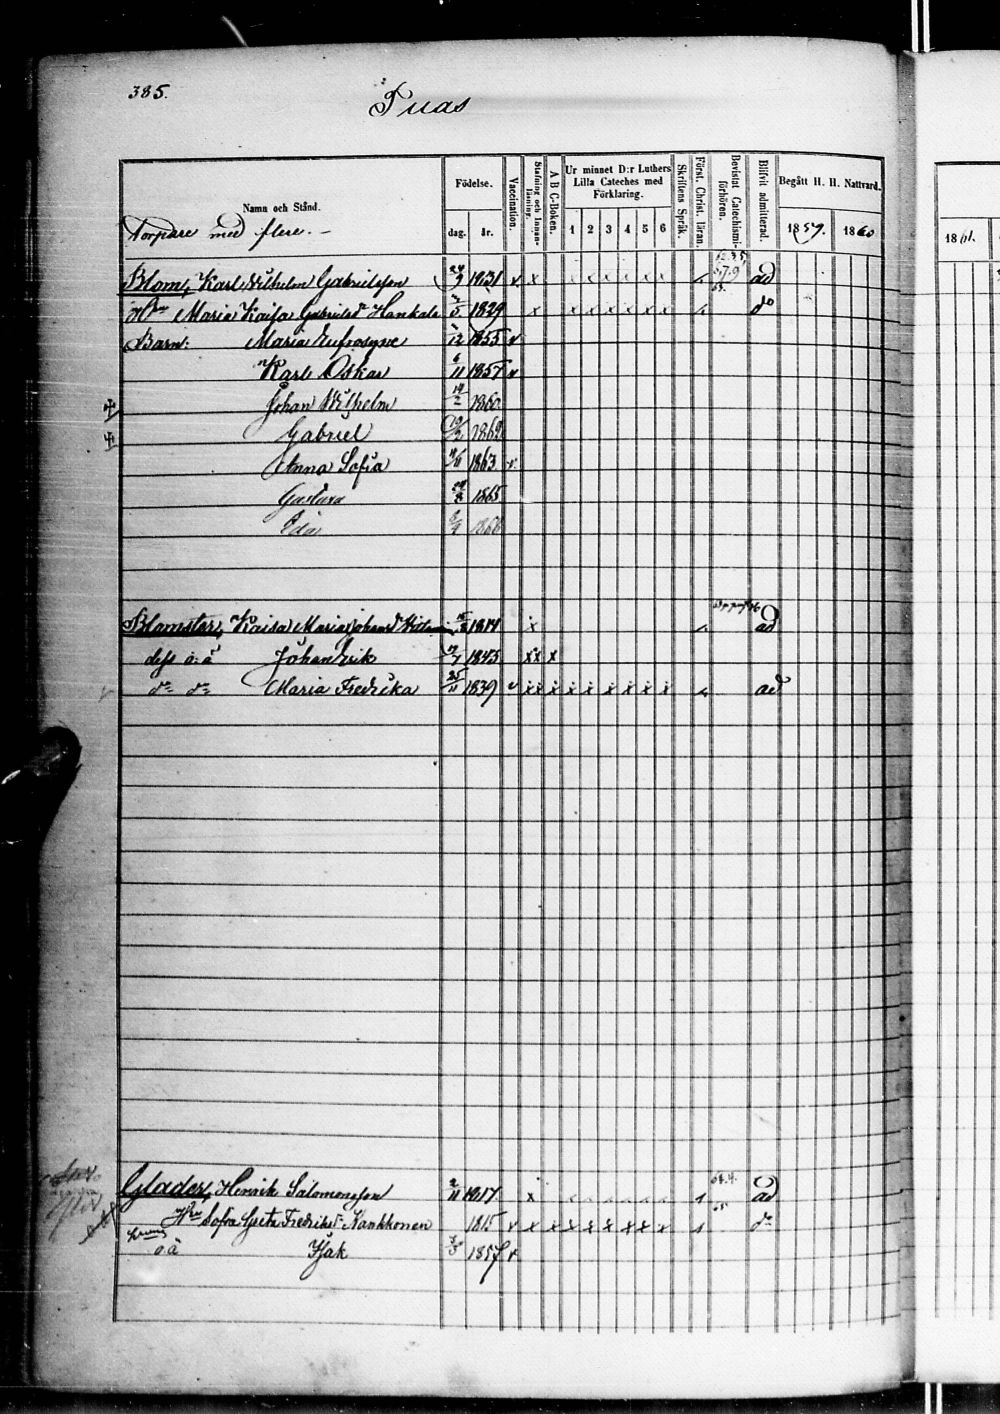 385.
Tuas
Namn och Stånd.
Födelse.
dag. år.
Vaccination.
Stafning och Innanläsning.
A B C-Boken.
Ur minnet D:r Luthers Lilla Cateches med Förklaring.
1 2 3 4 5 6
Skriftens Språk.
Först. Christ. läran.
Bevistat Catechismiförhören.
Blifvit admitterad.
Begått H. H. Nattvard.
1859. 1860
1861.
Torpare med flere.
Blom, Karl Wilhelm Gabrielsson 24/9 1831 v x x x x x x x ad
Hru Maria Kaisa Gabrielsdr Hankala 1829 x x x x x x x do
Barn: Maria Eufrosyne /12 1855 v
Karl Oskar 6/11 1857 v
Johan Wilhelm 14/2 1860
Gabriel 1862
Anna Sofia /11 1863 v
Gustava 1865
Ida 1866
Blomster, Kaisa Maria Johansd 1814 x ad
dess o.ä Johan Erik 1845 xx x
do do Maria Fredrika 25/11 1839 v xx x x x x x x x ad
Glader, Henrik Salomonsson 2/11 1817 x ad
Hru Sofia Greta Fredriksdr Kankkonen 1815 v x x x x x x x x do
o.ä Isak 1857 v